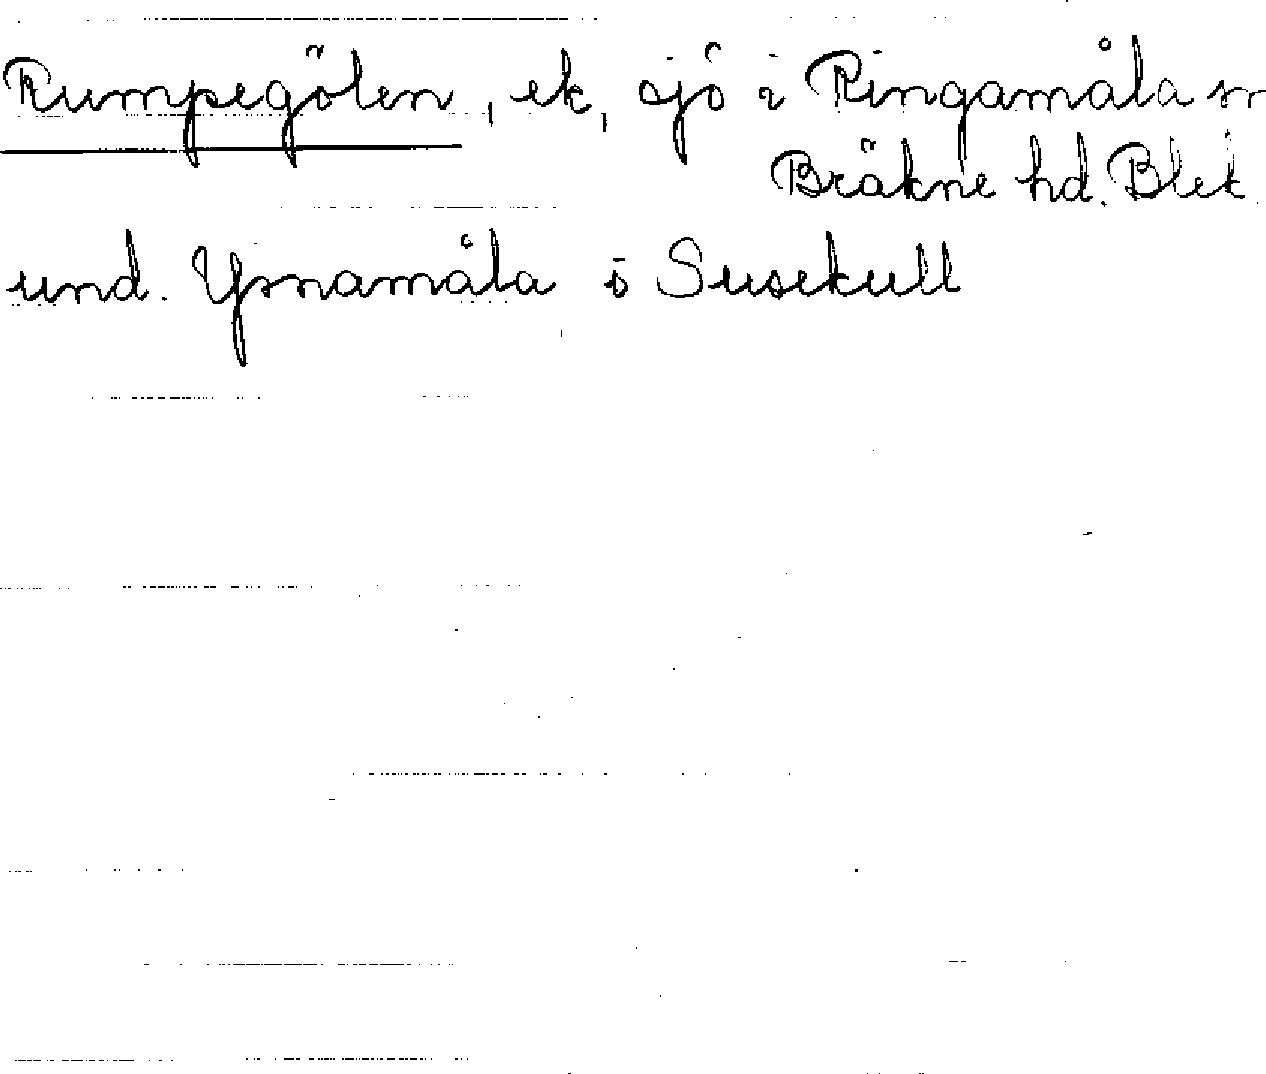 Rumpegölen, ek, sjö i Ringamåla sn
Bräkne hd. Blek
und. Ysnamåla o Susekull